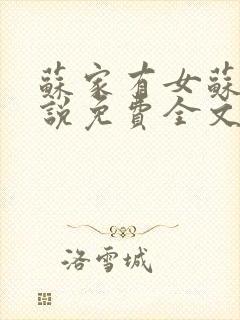 蘇家有女蘇
說免費全文
洛雪城